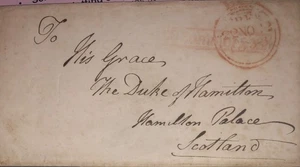 To
His Grace
The Duke of Hamilton
Hamilton Palace
Scotland